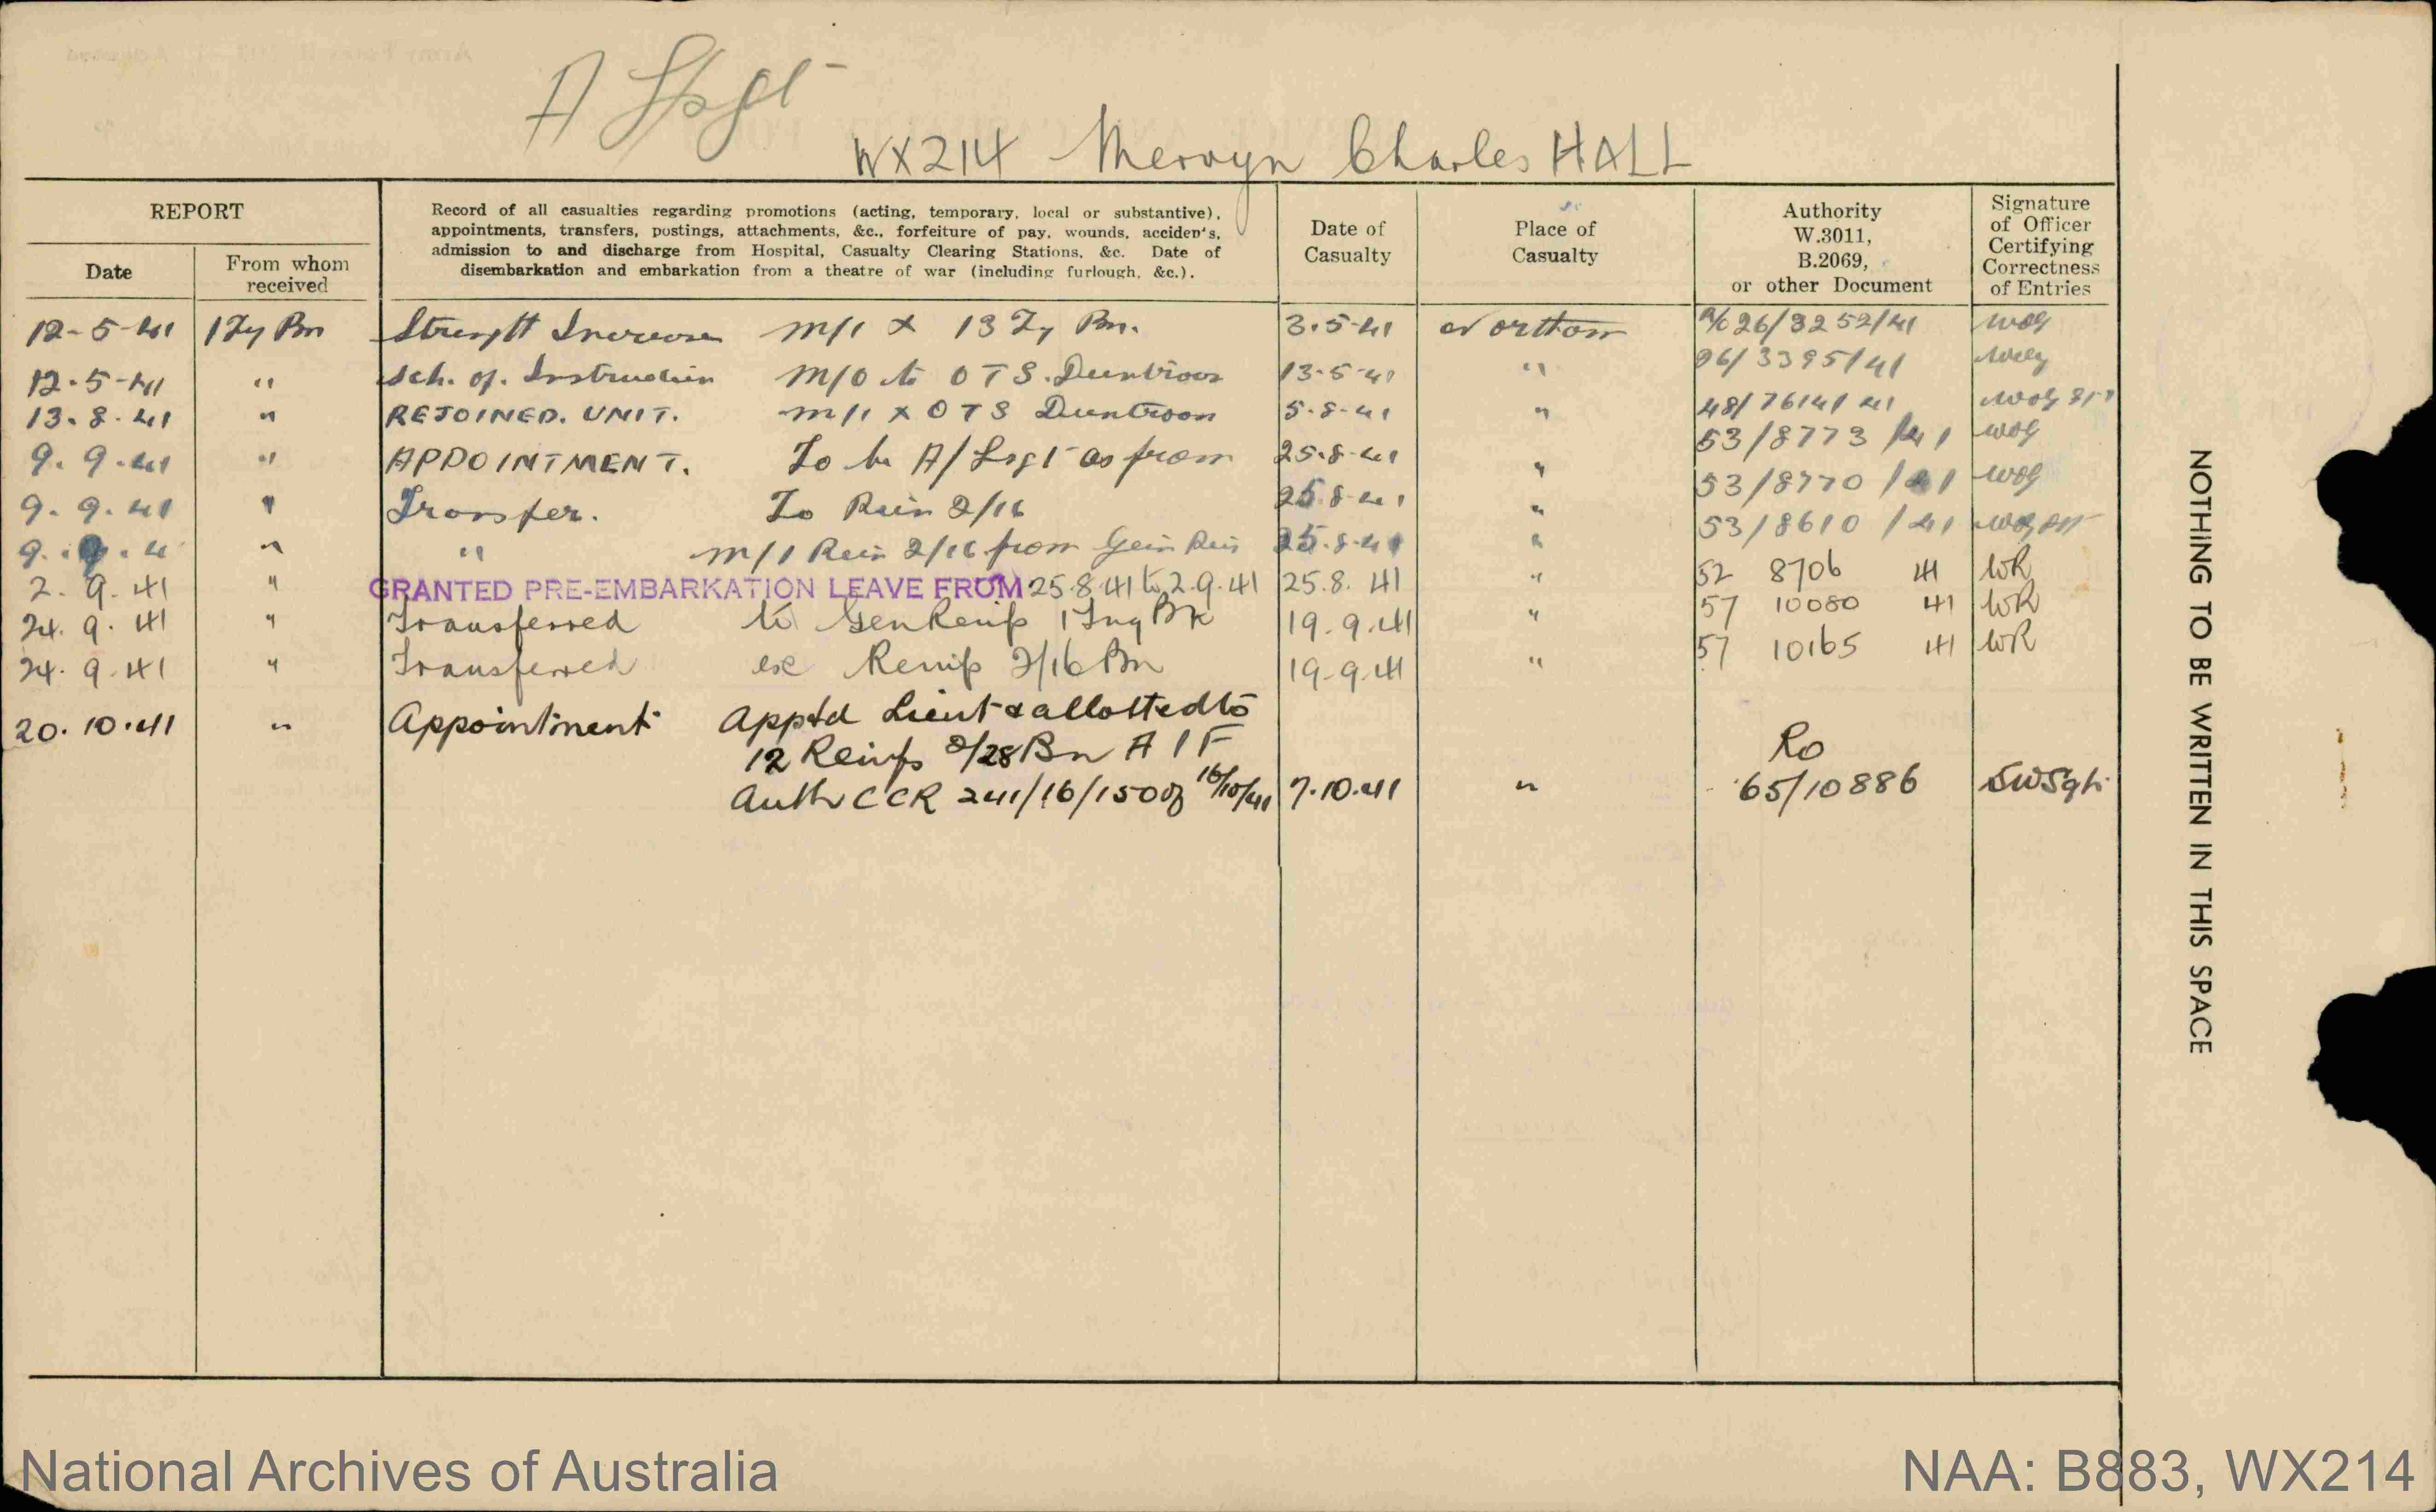 A/Sgt
WX214 Mervyn Charles HALL
REPORT
Date
From whom received
Record of all casualties regarding promotions (acting, temporary, local or substantive),
appointments, transfers, postings, attachments, &c., forfeiture of pay, wounds, acciden's,
admission to and discharge from Hospital, Casualty Clearing Stations, &c. Date of
disembarkation and embarkation from a theatre of war (including furlough, &c.).
Date of Casualty
Place of Casualty
Authority
W.3011,
B.2069,
or other Document
Signature
of Officer
Certifying
Correctness
of Entries
12-5-41 1 Tg Bn Strength Increase M/I X 13 Tg Bn. 3.5.41 Northam 26/3252/41
12-5-41 " Sch. of. Instruction M/O to OTS. Duntroon 13-5-41 " 26/3395/41
13.8.41 " REJOINED. UNIT. M/I X OTS Duntroon 5-8-41 " 48/7614/41
9.9.41 " APPOINTMENT. To be A/Sgt as from 25.8.41 " 53/8773/41
9.9.41 " Transfer. To Rein 2/16 25.8.41 " 53/8770/41
9.9.4 " " M/I Rein 2/16 from Gein Rein 25.8.41 " 53/8610/41
2.9.41 " GRANTED PRE-EMBARKATION LEAVE FROM 25.8.41 to 2.9.41 25.8.41 " 52 8706 41 WR
24.9.41 " Transferred to Gen Reinfs 1 Tng Bn 19.9.41 " 57 10080 41 WR
24.9.41 " Transferred ex Reinfs 2/16 Bn 19.9.41 " 57 10165 41 WR
20.10.41 " Appointment Apptd Lieut & allotted to
12 Reinfs 2/28 Bn A I F Ro
Auth CCR 241/16/150 of 16/10/41 7.10.41 " 65/10886
NOTHING TO BE WRITTEN IN THIS SPACE
National Archives of Australia
NAA: B883, WX214